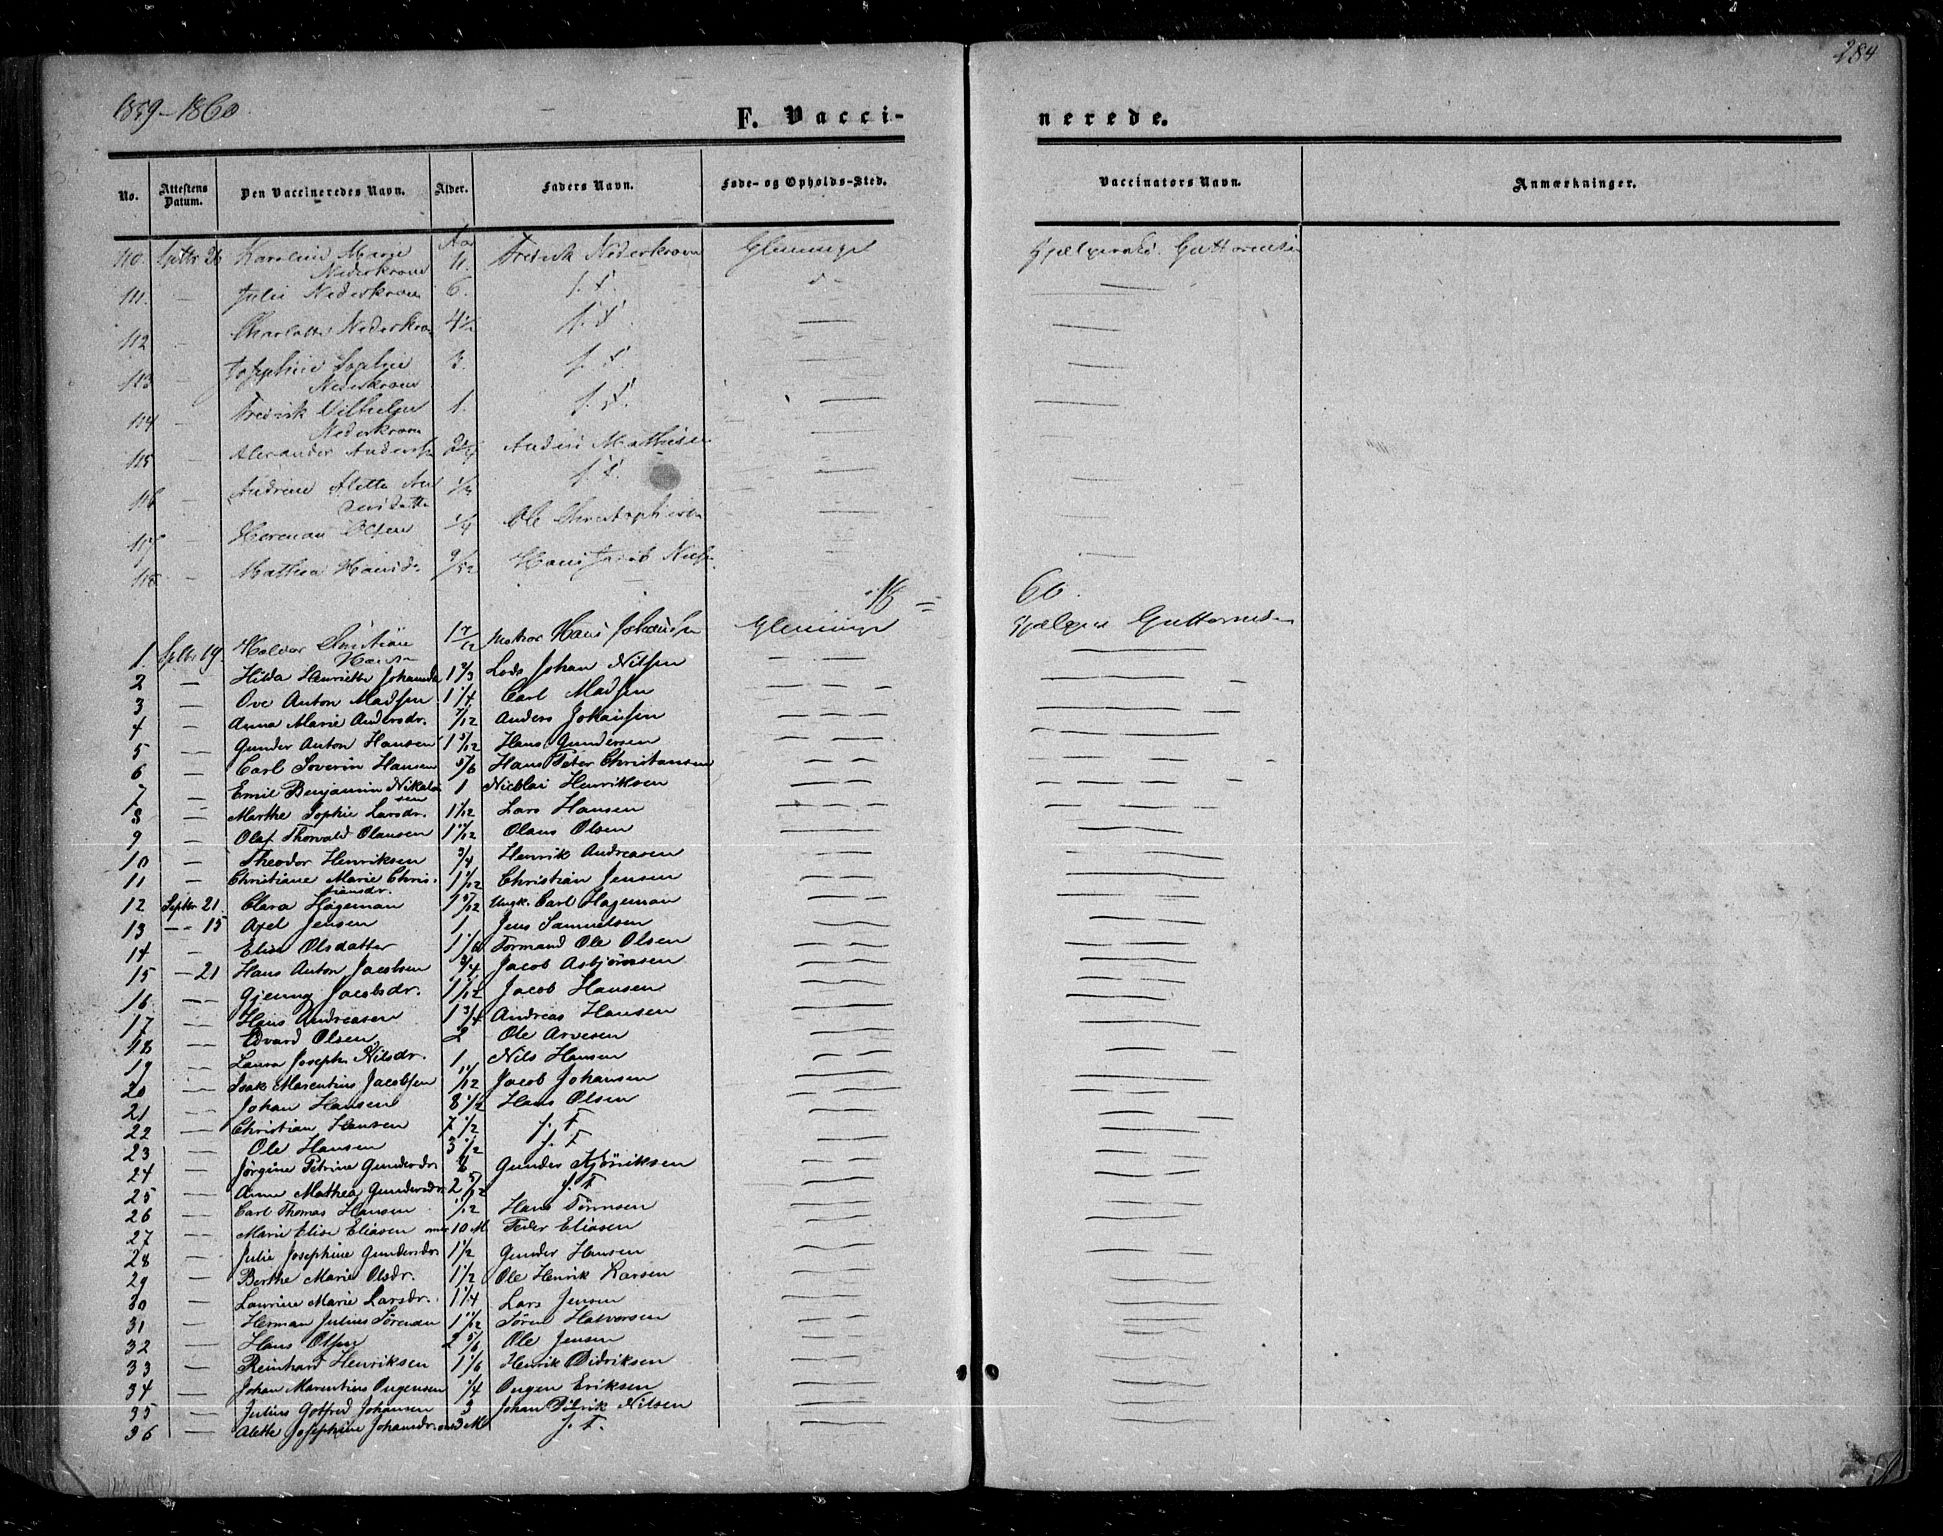 284
1859-1860
F. Vacci-
nerede.
No.
Attestens Datum.
Den Vaccineredes Navn.
Alder.
Faders Navn.
Føde- og Opholds-Sted.
Vaccinators Navn.
Anmærkninger.
110. Septbr 26 Karoline Marie Aar Fredrik Nederkorn Glemminge Guttormsen
Nederkorn 11.
111. — Julie Nederkorn 6. s. F. d -
112 — Charlotte Nederkorn 4½ s. F.
113 — Josephine Sophie 3. s. F.
Nederkorn
114 — Fredrik Vilhelm 1. s. F.
Nederkorn
115 — Alexander Anders 2¼ Anders Mathisen
116 — Andrine Alette An 1/3 s. F.
dersdatter
117 — Herman Olsen ¼ Ole Christophersen
118 — Mathea Hansd. 9/12 Hans Jacob Niels
18 = 60.
1. Septbr 19 Halvor Christian Matros Hans Johansen Glemminge Guttormsen
Hansen
2 — Hilda Henriette Johansd 1 2/3 Lods Johan Nilsen
3 — Ove Anton Madsen 1 1/4 Carl Madsen
4 — Anna Marie Andersdr. 7/12 Anders Johansen
5 — Gunder Anton Hansen 1 5/12 Hans Gundersen
6 — Carl Soverin Hansen 5/6 Hans Peter Christiansen
7 — Emil Benjamin Nikolai 1 Nicolai Henriksen
sen
8 — Marthe Sophie Larsdr. 1 1/12 Lars Hansen
9 — Olaf Thorvald Olausen 1 1/12 Olaus Olsen
10 — Theodor Henriksen 3/4 Henrik Andreasen
11 — Christiane Marie Chris- 1 1/12 Christian Jensen
tiansdr.
12 Septbr 21. Clara Hageman 1 5/12 Ungk. Carl Hageman
13 — 15 Axel Jensen 1 Jens Samuelsen
14 — Elise Olsdatter 1 1/6 Formand Ole Olsen
15 — 21 Hans Anton Jacobsen 3/4 Jacob Asbjörnsen
16. — Gjenny Jacobsdr. 1 1/12 Jacob Hansen
17 — Hans Andreasen 1 3/4 Andreas Hansen
18 — Edvard Olsen 2 Ole Arvesen
19 — Laura Joseph. Nilsdr. 1 Nils Hansen
20 — Isak Marentius Jacobsen 11/12 Jacob Johansen
21 — Johan Hansen 8 1/2 Hans Olsen
22 — Christian Hansen 7 1/2 s. F
23 — Ole Hansen 3 1/2 s. F
24 — Jørgine Petrine Gundersdr Gunder
25 — Anne Mathea Gundersdr. 2 5/12 s. F
26 — Carl Thomas Hansen 1/12 Hans
27 — Marie Elise Eliasen 10 M Peder Eliasen
28 — Julie Josephine Gundersdr 1 1/2 Gunder Hansen
29 — Berthe Marie Olsdr. 1 1/2 Ole Henrik Larsen
30 — Laurine Marie Larsdr. 1 1/4 Lars Jensen
31 — Herman Julius Sørensen 1 11/12 Søren Halvorsen
32 — Hans Olsen 2 5/6 Ole Jensen
33 — Reinhard Henriksen 1 1/6 Henrik Didriksen
34 — Johan Marentius Ougensen 1/4 Ougen Eriksen
35 — Julius Gotfred Johansen 3 Johan Didrik Nilsen
36 — Alette Josephine Johansdr. 3 M s. F.